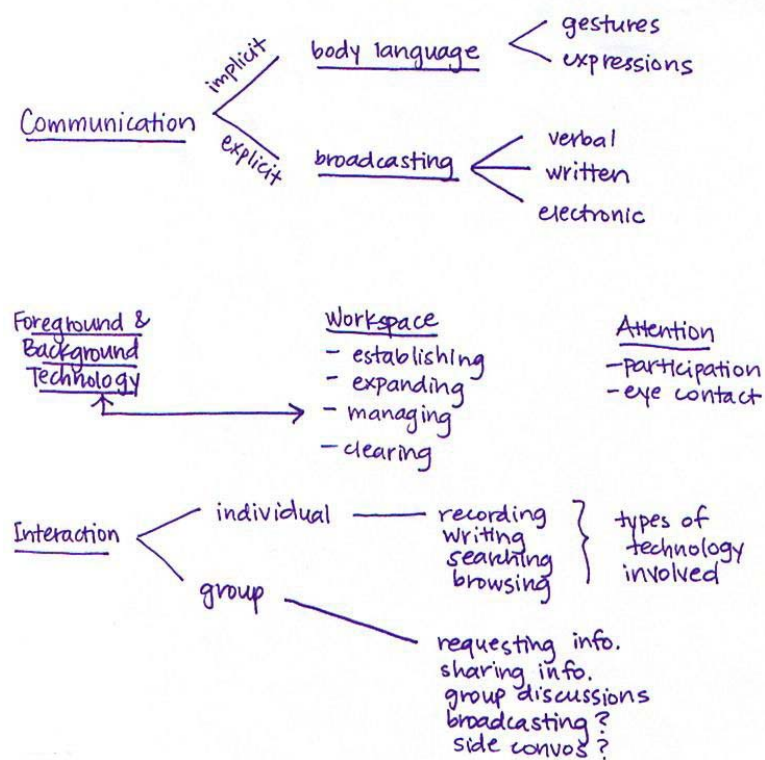 Communication
implicit
body language
gestures
expressions
explicit
broadcasting
verbal
written
electronic
Foreground &
Background
Technology
Workspace
- establishing
- expanding
- managing
- clearing
Attention
- participation
- eye contact
Interaction
individual
recording
writing
searching
browsing
types of
technology
involved
group
requesting info.
sharing info.
group discussions
broadcasting?
side convos?